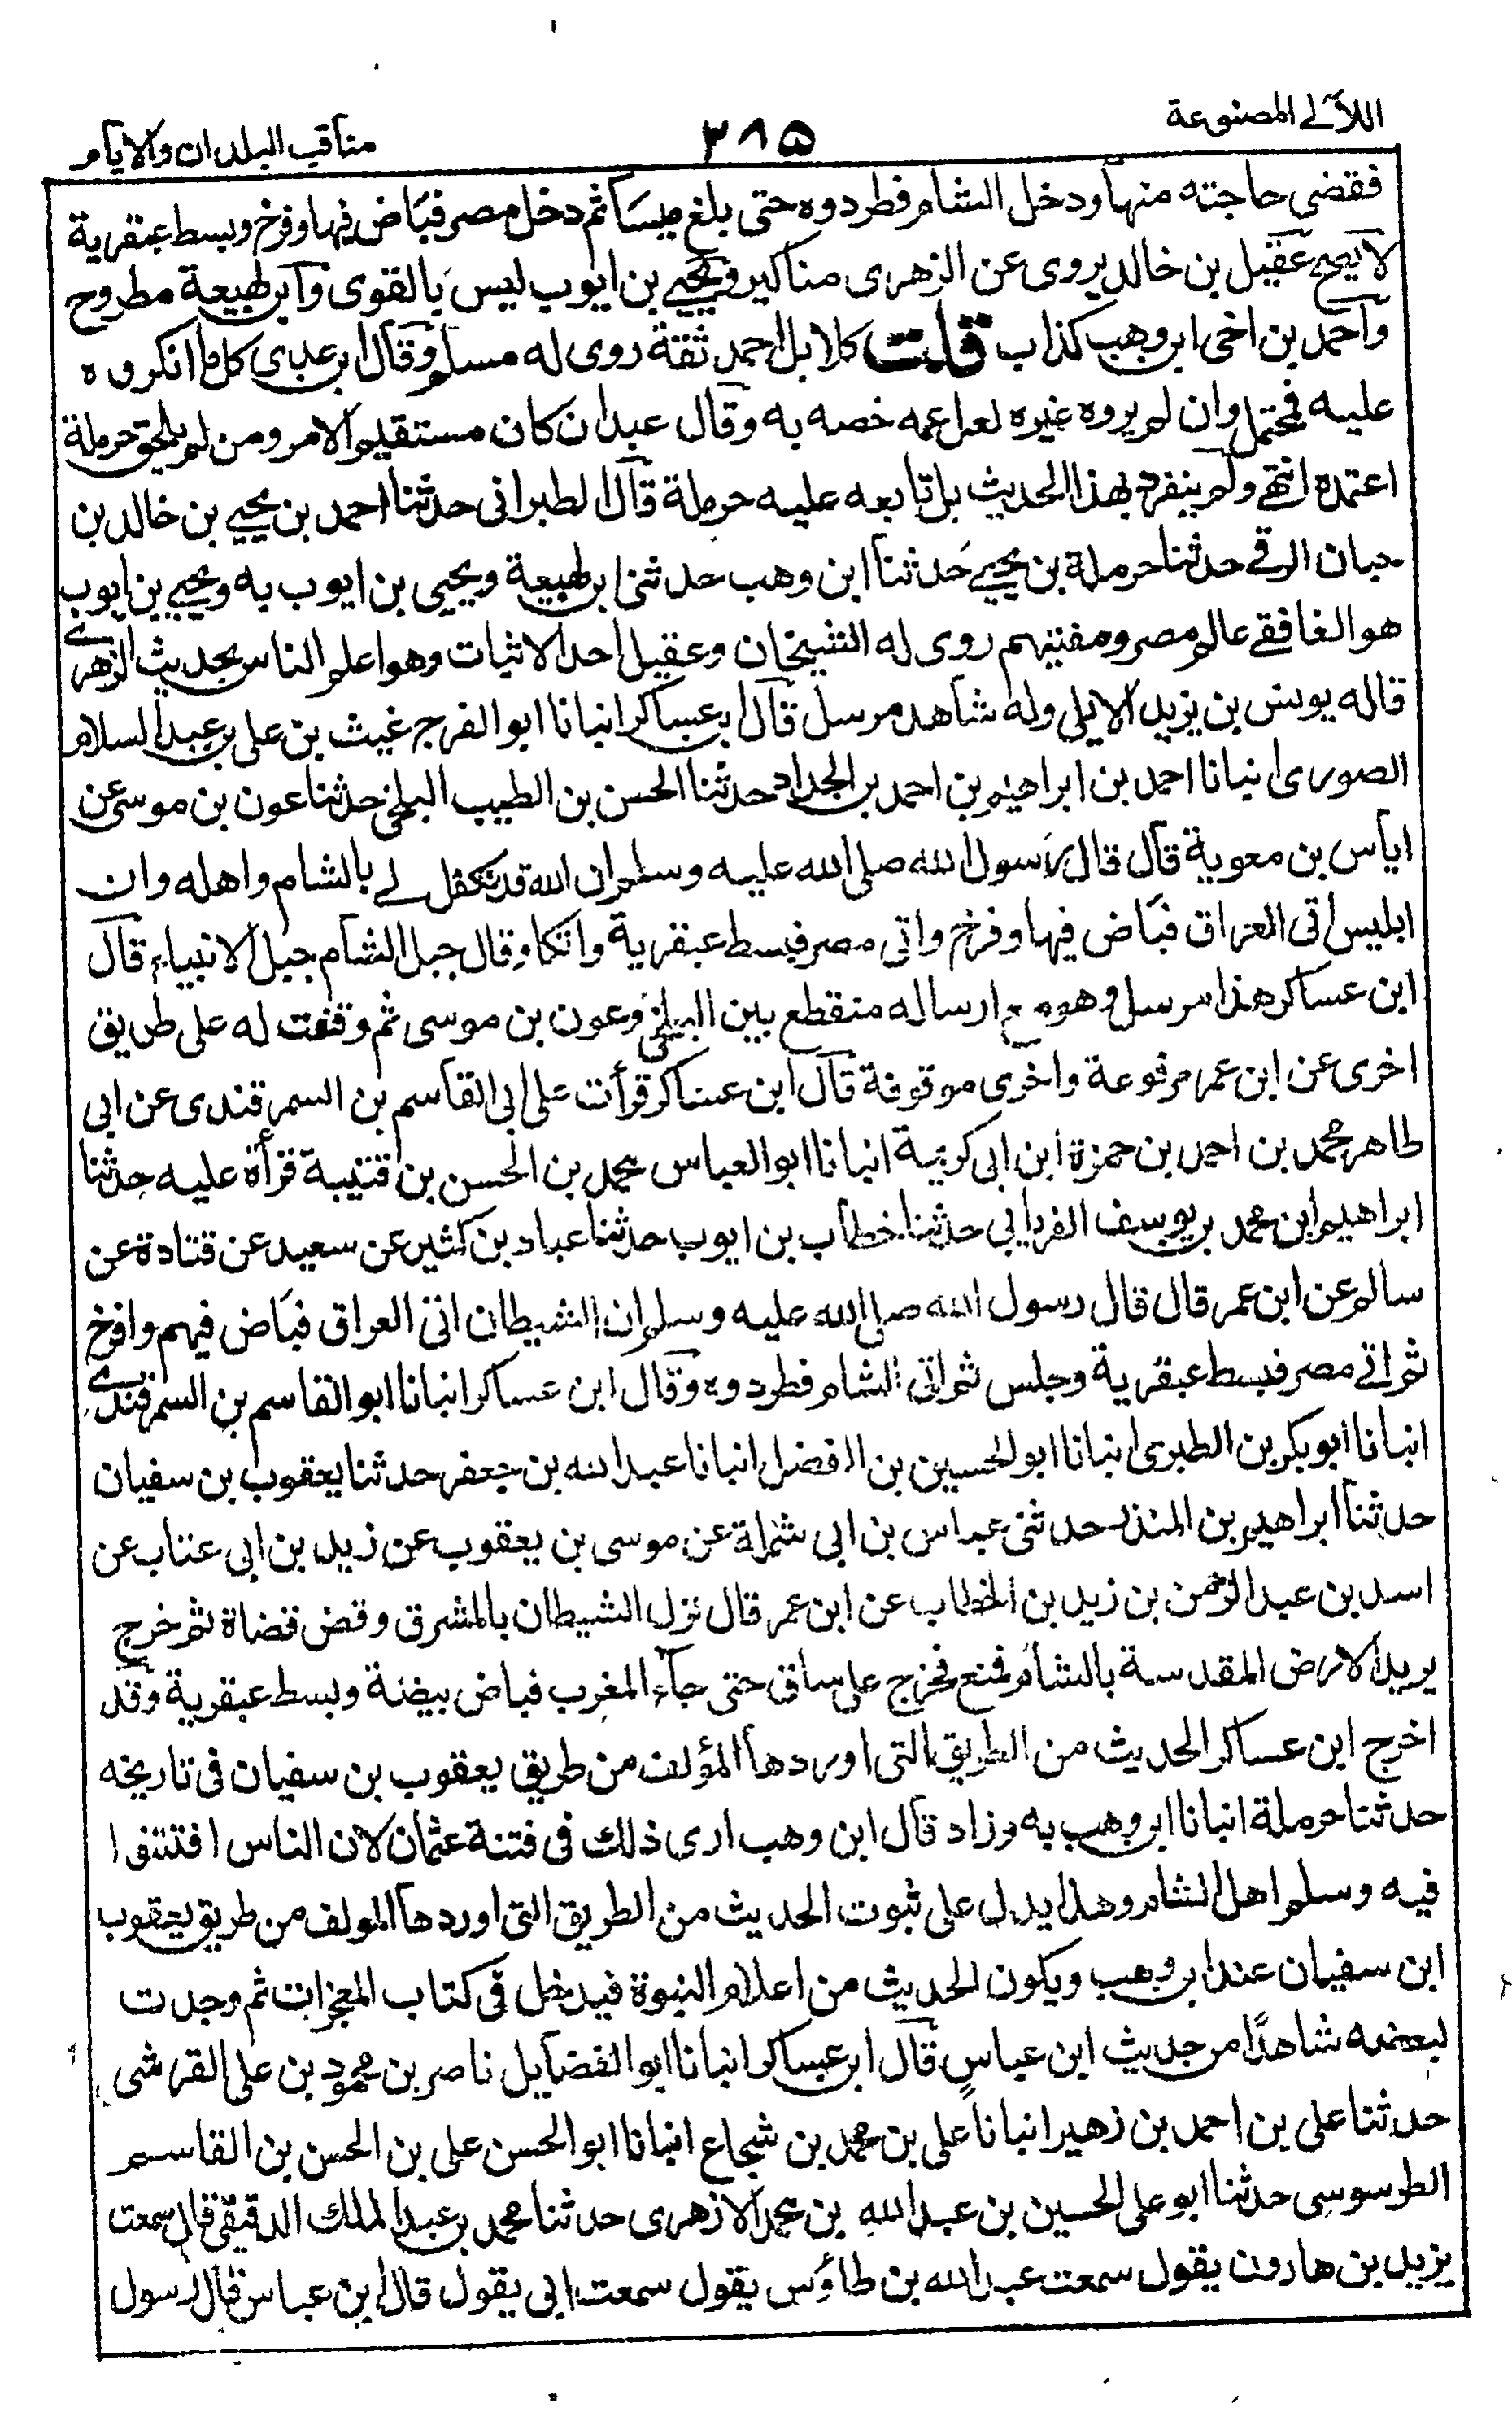 اللآلے المصنوعة
٣٨٥
مناقب البلدان والايام
فقضى حاجته منها ودخل الشام فطردوه حتى بلغ ميسا ثم دخل مصر فباض فيها وفرخ وبسط عبقرية
لا يصح عقيل بن خالد يروى عن الزهرى مناكير ويحيے بن ايوب ليس بالقوى وابن لهيعة مطروح
واحمد بن اخى ابن وهب كذاب قلت كلا بل احمد ثقة روى له مسلم وقال ابن عدى كل ما انكروه
عليه فمحتمل وان لم يروه غيره لعل عمه خصه به وقال عبدان كان مستقيم الامر ومن لم يلحق حرملة
اعتمده انتهے ولم ينفرد بهذا الحديث بل تابعه عليه حرملة قال الطبرانى حدثنا احمد بن يحيے بن خالد بن
حبان الرقے حدثنا حرملة بن يحيے حدثنا ابن وهب حدثنى ابن لهيعة ويحيى بن ايوب به ويحيے بن ايوب
هو الغافقے عالم مصر ومفتيهم روى له الشيخان وعقيل احد الاثبات وهو اعلم الناس بحديث الزهرے
قاله يونس بن يزيد الايلى وله شاهد مرسل قال ابن عساكر انبانا ابو الفرج غيث بن على بن عبد السلام
الصورى انبانا احمد بن ابراهيم بن احمد بن الحداد حدثنا الحسن بن الطيب البلخى حدثنا عون بن موسى عن
اياس بن معوية قال قال رسول الله صلى الله عليه وسلم ان الله قد تكفل لے بالشام واهله وان
ابليس اتى العراق فباض فيها وفرخ واتى مصر فبسط عبقرية واتكاء وقال جبل الشام جبل الانبياء قال
ابن عساكر هذا مرسل وهو مع ارساله منقطع بين البلخى وعون بن موسى ثم وقفت له على طريق
اخرى عن ابن عمر مرفوعة واخرى موقوفة قال ابن عساكر قرأت على ابى القاسم بن السمرقندى عن ابى
طاهر محمد بن احمد بن حمزة ابن ابى كريبة انبانا ابو العباس محمد بن الحسن بن قتيبة قرأة عليه حدثنا
ابراهيم ابن محمد بن يوسف الفريابي حدثنا خطاب بن ايوب حدثنا عباد بن كثير عن سعيد عن قتادة عن
سالم عن ابن عمر قال قال رسول الله صلى الله عليه وسلم ان الشيطان اتى العراق فباض فيهم وافرخ
ثم اتے مصر فبسط عبقرية وجلس ثم اتى الشام فطردوه وقال ابن عساكر انبانا ابو القاسم بن السمرقندے
انبانا ابو بكر بن الطبرى انبانا ابو الحسين بن الفضل انبانا عبد الله بن جعفر حدثنا يعقوب بن سفيان
حدثنا ابراهيم بن المنذر حدثنى عباس بن ابى شملة عن موسى بن يعقوب عن زيد بن ابى عتاب عن
اسد بن عبد الرحمن بن زيد بن الخطاب عن ابن عمر قال نزل الشيطان بالمشرق وقض قضاة ثم خرج
يريد الارض المقدسة بالشام فمنع فخرج على ساق حتى جاء المغرب فباض بيضة وبسط عبقرية وقد
اخرج ابن عساكر الحديث من الطريق التى اوردها المؤلف من طريق يعقوب بن سفيان فى تاريخه
حدثنا حرملة انبانا ابن وهب به وزاد قال ابن وهب ارى ذلك فى فتنة عثمان لان الناس افتتنوا
فيه وسلم اهل الشام وهذا يدل على ثبوت الحديث من الطريق التى اوردها المولف من طريق يعقوب
ابن سفيان عند ابن وهب ويكون الحديث من اعلام النبوة فيدخل فى كتاب المعجزات ثم وجدت
لبعضه شاهدًا من حديث ابن عباسٍ قال ابن عساكر انبانا ابو الفضايل ناصر بن محمود بن على القرشى
حدثنا على بن احمد بن زهير انبانا على بن محمد بن شجاع انبانا ابو الحسن على بن الحسن بن القاسم
الطرسوسى حدثنا ابو على الحسين بن عبد الله بن محمد الازهرى حدثنا محمد بن عبد الملك الدقيقى قال سمعت
يزيد بن هارون يقول سمعت عبد الله بن طاؤس يقول سمعت ابى يقول قال ابن عباس قال رسول